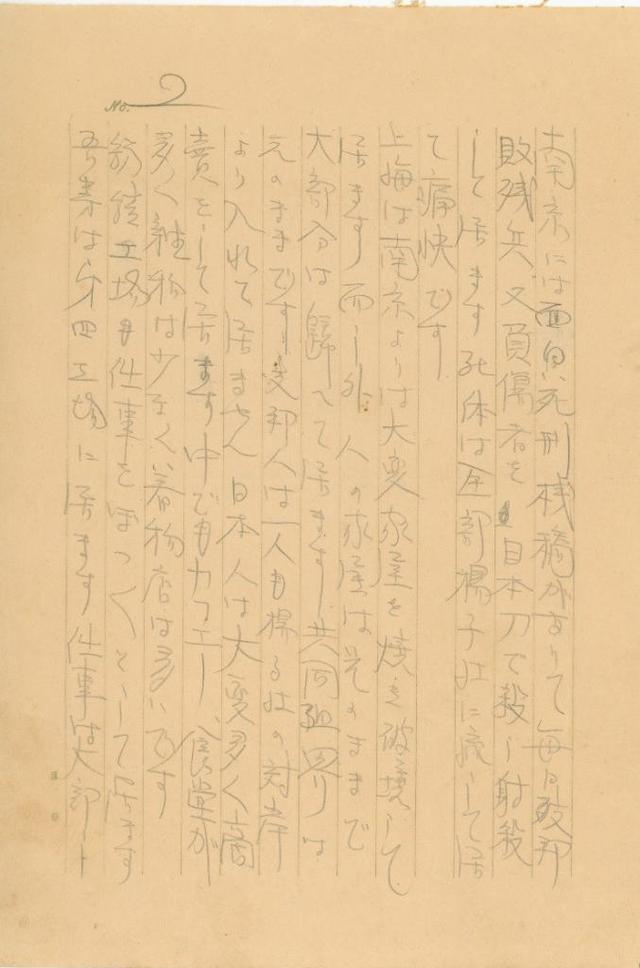 No. 2
南京には面白い死刑桟橋がありて毎日支那
敗残兵又負傷者を日本刀で殺し射殺
して居ます死体は全部揚子江に流して居
て痛快です
上海は南京よりは大変家屋を焼き破壊して
居ます而し外人の家屋は元のままで
大部分は歸へて居ます共同租界は
元のままです支那人は一人も揚子江の対岸
より入れて居ません日本人は大変多く商
賣をして居ます中でもカフエー、食堂が
多く雑物は少なく着物店は多いです
紡績工場も仕事をぼつぼつとして居ます
吾等は第四工場に居ます仕事は大部ト